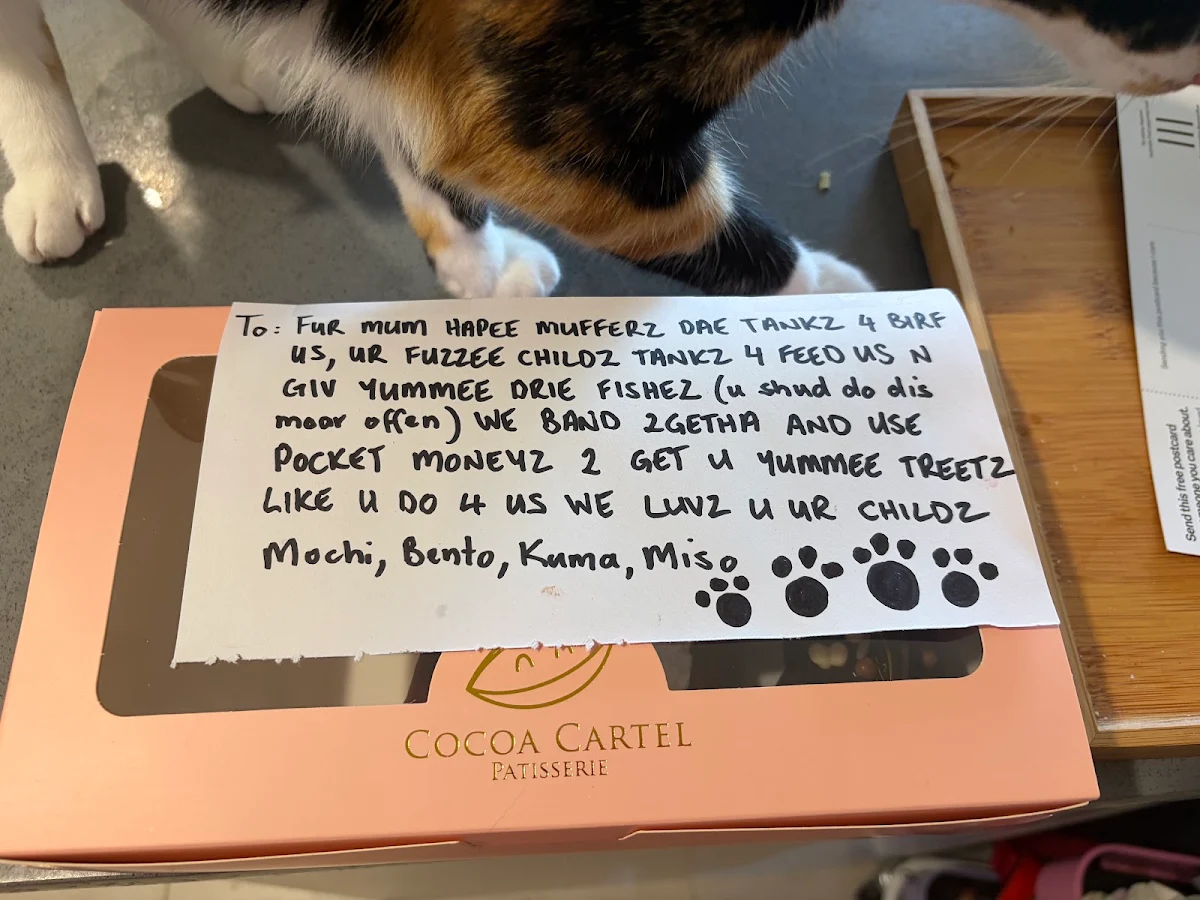 To: FUR MUM HAPEE MUFFERZ DAE TANKZ 4 BIRF
US, UR FUZZEE CHILDZ TANKZ 4 FEED US N
GIV YUMMEE DRIE FISHEZ (u shud do dis
moar offen) WE BAND 2GETHA AND USE
POCKET MONEYZ 2 GET U YUMMEE TREETZ
LIKE U DO 4 US WE LUVZ U UR CHILDZ
Mochi, Bento, Kuma, Miso
COCOA CARTEL
PATISSERIE
Send this free postcard
someone you care about.